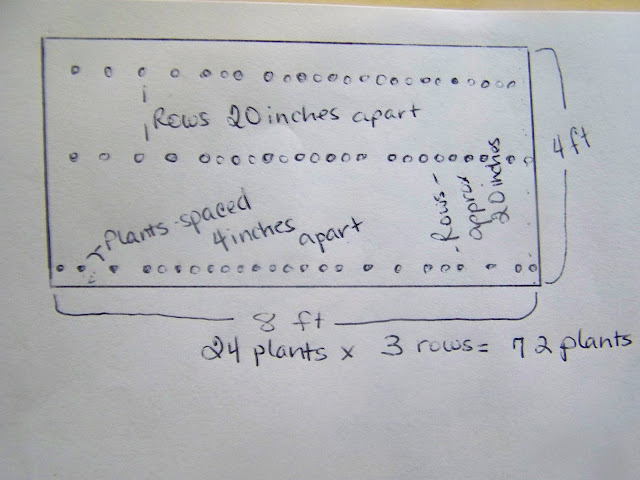 Rows 20 inches apart
4 ft
Plants spaced
4 inches apart
Rows -
approx
20 inches
8 ft
24 plants x 3 rows = 72 plants